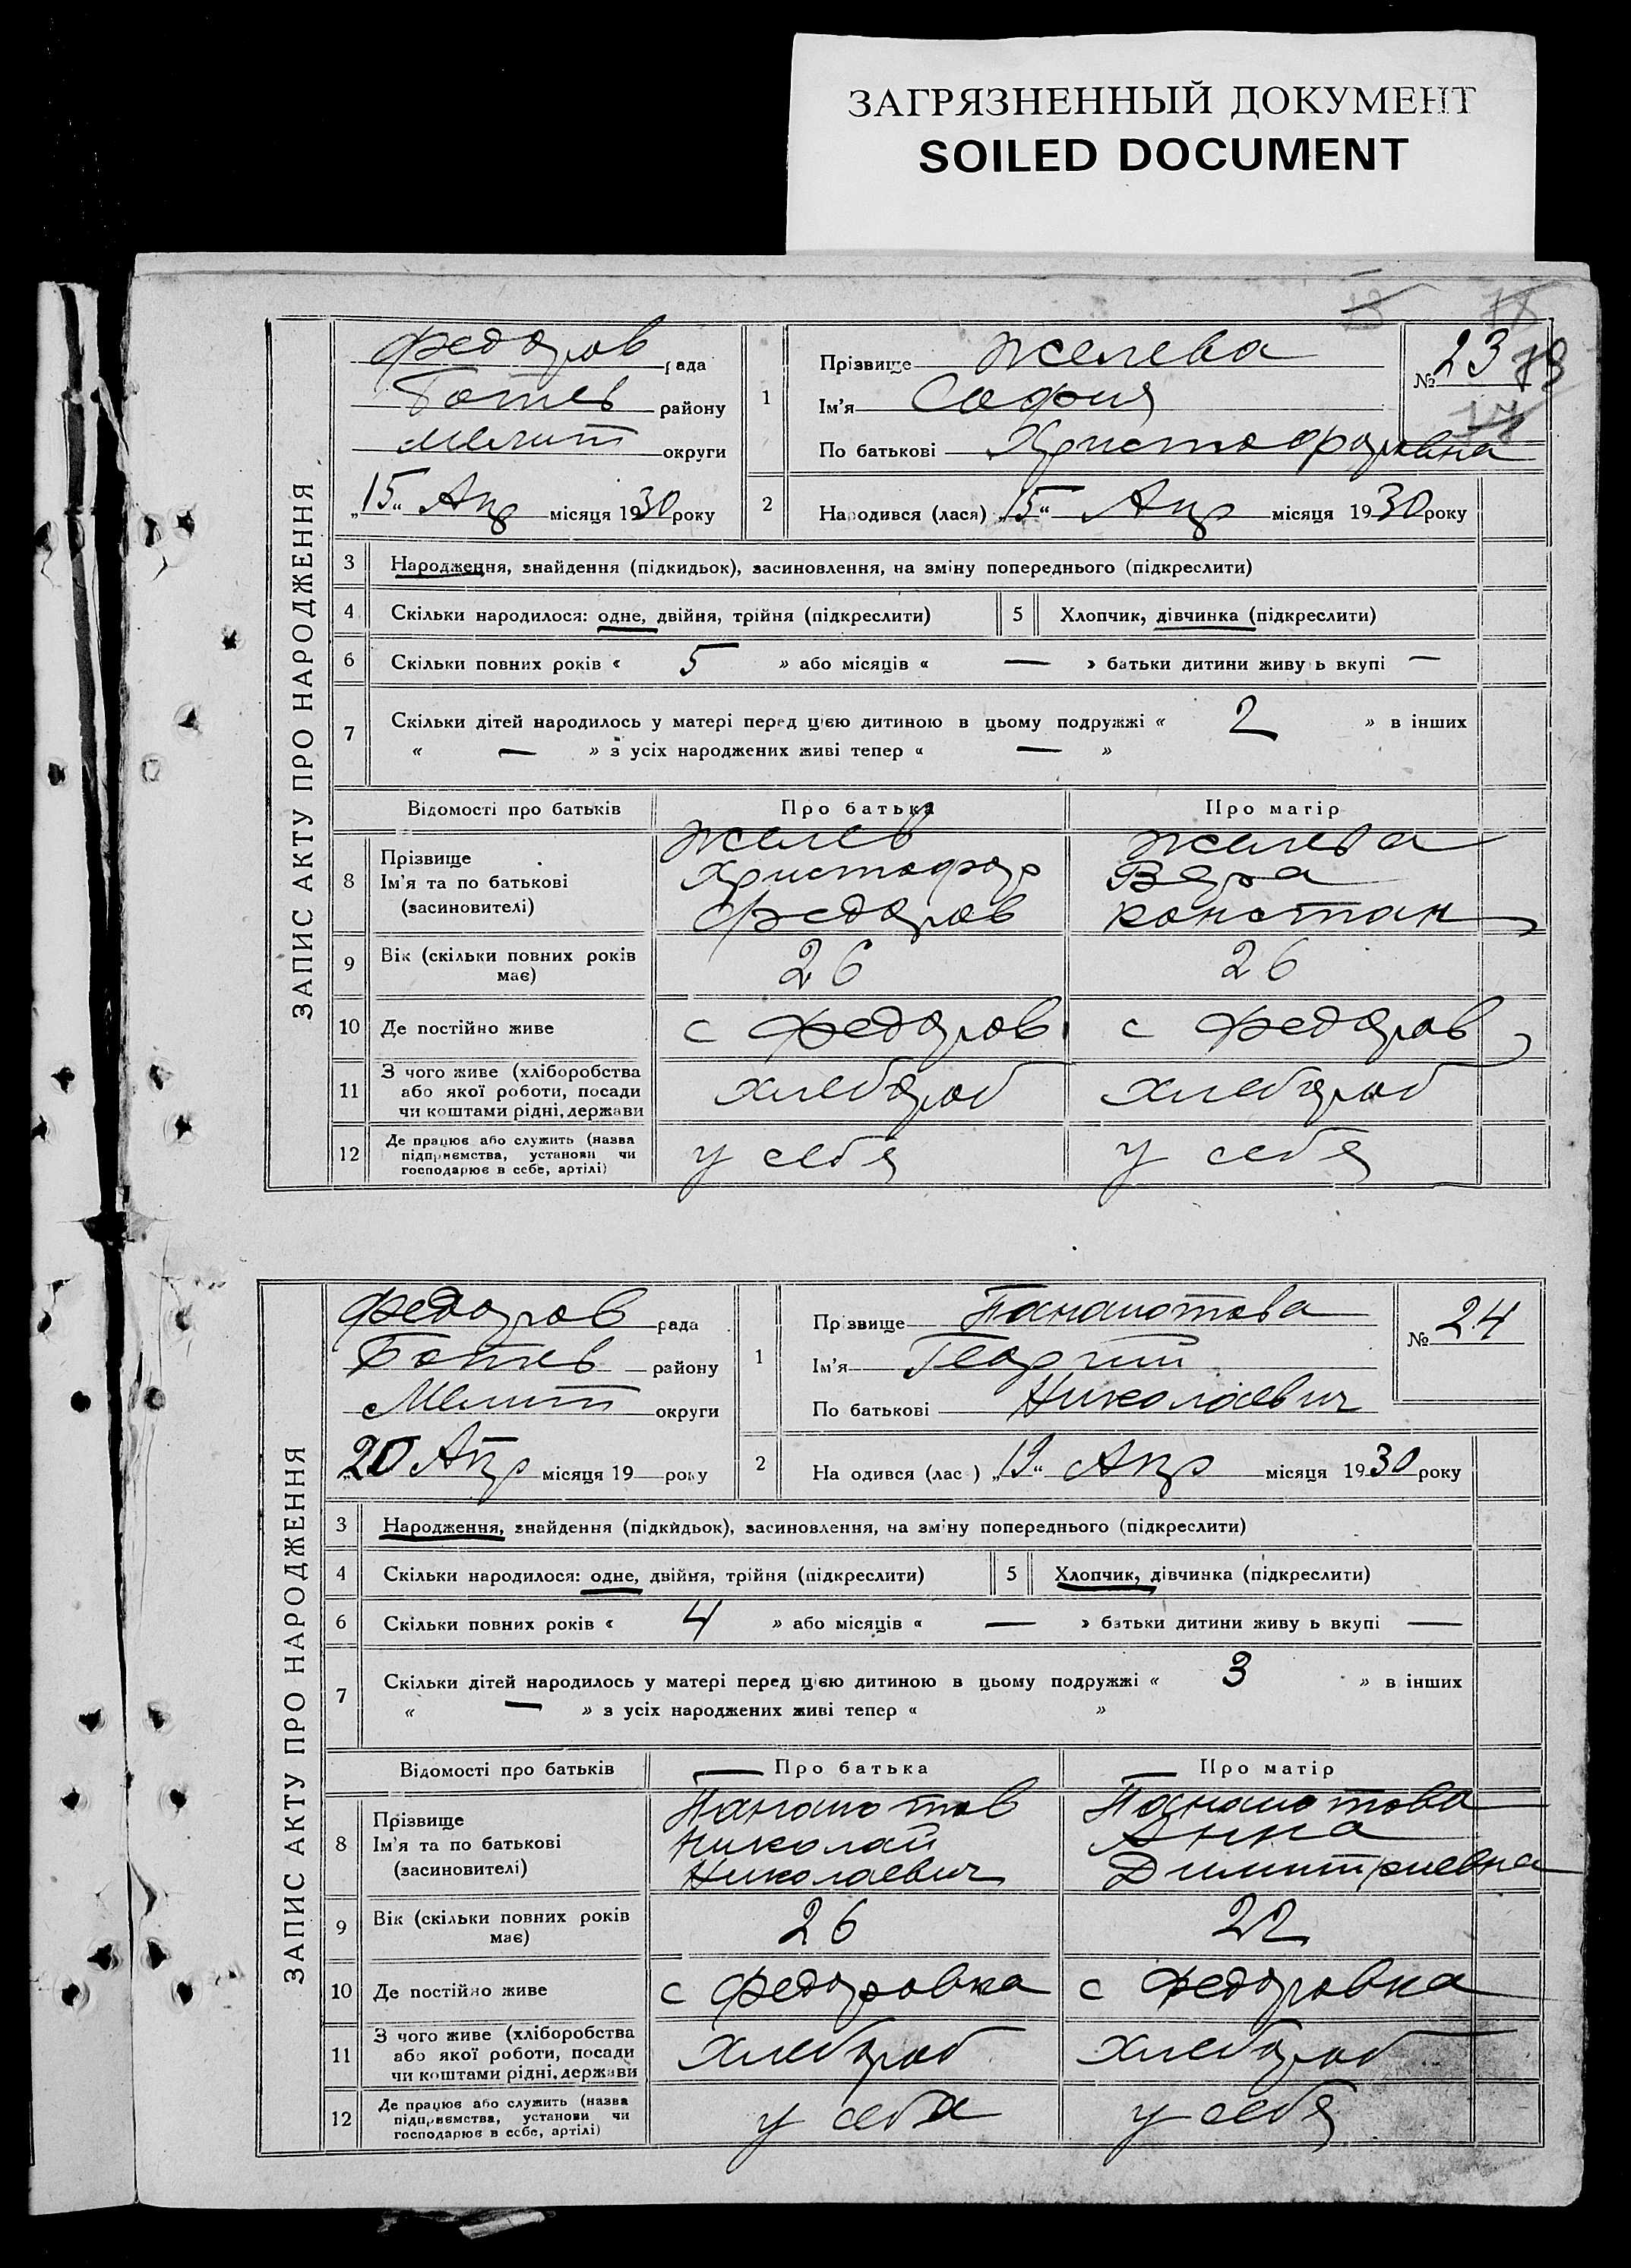 ЗАГРЯЗНЕННЫЙ ДОКУМЕНТ
SOILED DOCUMENT
ЗАПИС АКТУ ПРО НАРОДЖЕННЯ
Федоров рада
Ботев району
Мелит округи
„15“ Апр місяця 1930 року
1
Прізвище Желева
Ім'я София
По батькові Христофоровна
№ 23
2
Народився (лася) „15“ Апр місяця 1930 року
3 Народження, знайдення (підкидьок), засиновлення, на зміну попереднього (підкреслити)
4 Скільки народилося: одне, двійня, трійня (підкреслити) 5 Хлопчик, дівчинка (підкреслити)
6 Скільки повних років « 5 » або місяців « — » батьки дитини живуь вкупі —
7 Скільки дітей народилось у матері перед цією дитиною в цьому подружжі « 2 » в інших
« — » з усіх народжених живі тепер « — »
Відомості про батьків Про батька Про матір
8 Прізвище Ім'я та по батькові (засновителі)
Желев Желева
Христофор Вера
Федоров Констан
9 Вік (скільки повних років має) 26 26
10 Де постійно живе с Федоров с Федоров
11 З чого живе (хліборобства
або якої роботи, посади хлебороб хлебороб
чи коштами рідні, держави
12 Де працює або служить (назва
підприємства, установи чи у себя у себя
господарює в себе, артілі)
ЗАПИС АКТУ ПРО НАРОДЖЕННЯ
Федоров рада
Ботев району
Мелит округи
„20 Апр місяця 19 року
1
Прзвище Панаиотова
Ім'я Георгий
По батькові Николаевич
№ 24
2
На одився (лас ) „19“ Апр місяця 1930 року
3 Народження, знайдення (підкидьок), засиновлення, на зміну попереднього (підкреслити)
4 Скільки народилося: одне, двійня, трійня (підкреслити) 5 Хлопчик, дівчинка (підкреслити)
6 Скільки повних років « 4 » або місяців « — » батьки дитини живу ь вкупі —
7 Скільки дітей народилось у матері перед цією дитиною в цьому подружжі « 3 » в інших
« — » з усіх народжених живі тепер « »
Відомості про батьків Про батька Про матір
8 Прізвище Ім'я та по батькові (засиновителі)
Панаиотов Панаиотова
Николай Анна
Николаевич Димитриевна
9 Вік (скільки повних років має) 26 22
10 Де постійно живе с Федоровка с Федоровка
11 З чого живе (хліборобства
або якої роботи, посади хлебороб хлебороб
чи коштами рідні, держави
12 Де працює або служить (назва
підприємства, установи чи у себя у себя
господарює в себе, артілі)